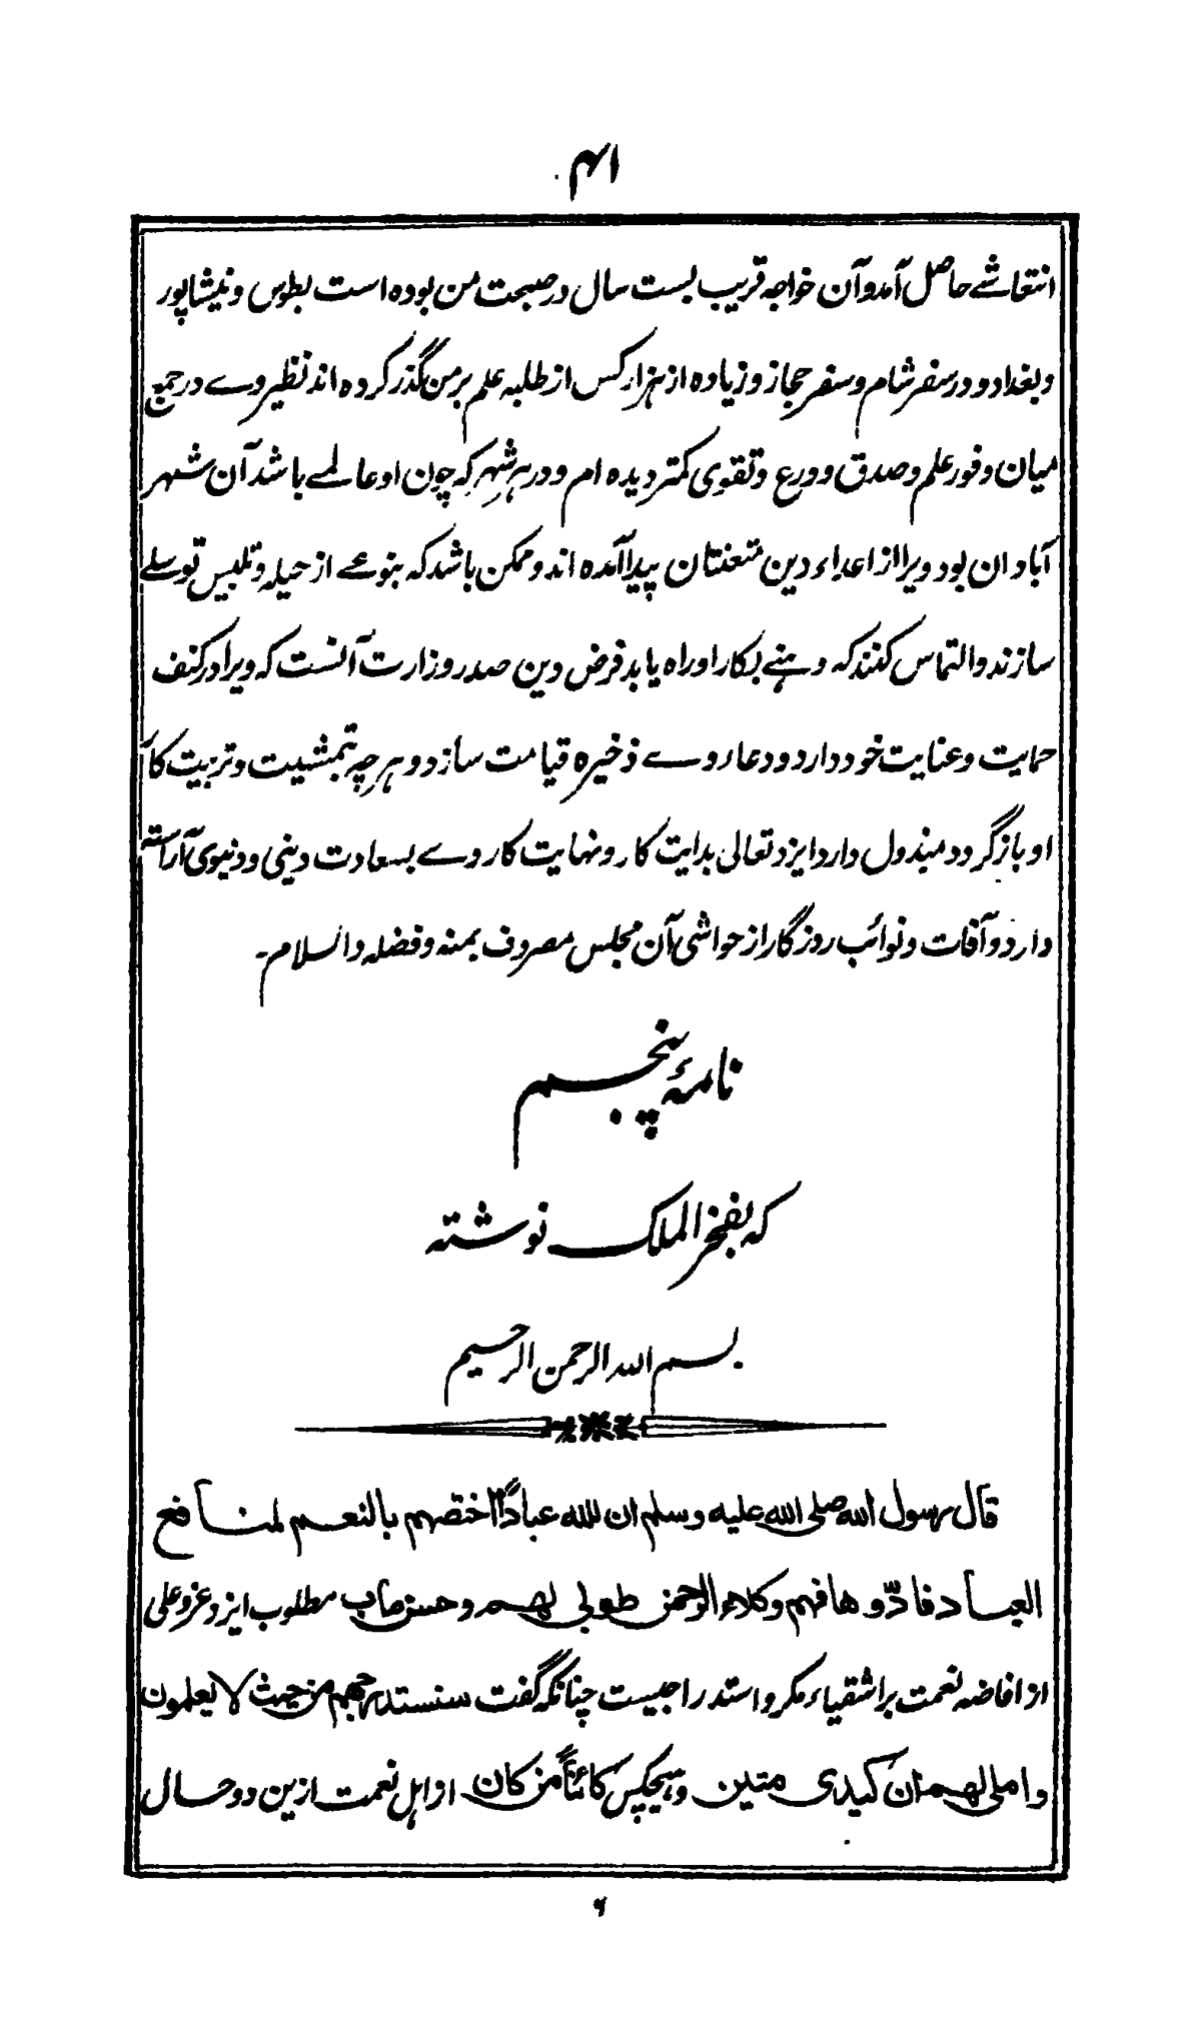 ۴۱
انتعاشے حاصل آمد و آن خواجہ قریب بست سال در صحبت من بوده است بطوس و نیشاپور
و بغداد و در سفر شام و سفر حجاز و زیاده از ہزار کس از طلبہ علم بر من گذر کرده اند نظیر وے در جمع
میان وفور علم و صدق و ورع و تقوی کمتر دیده ام و در ہر شہر کہ چون او عالمے باشد آن شہر
آبادان بود ویرا از اعداء دین متعنتان پیدا آمده اند و ممکن باشد کہ بنوعے از حیلہ و تلبیس توسلے
سازند و التماس کنند کہ وہنے بکار او راه یابد فرض دین صدر وزارت آنست کہ ویرا در کنف
حمایت و عنایت خود دارد و دعاء وے ذخیره قیامت سازد و ہرچہ بتمشیت و تربیت کار
او باز گردد مبذول دارد ایزد تعالی بدایت کار و نہایت کار وے بسعادت دینی و دنیوی آراستہ
دارد و آفات و نوائب روزگار از حواشی آن مجلس مصروف بمنہ و فضلہ والسلام۔
نامۂ پنجم
کہ بفخر الملک نوشتہ
بسم الله الرحمن الرحیم
قال رسول الله صلی الله علیه وسلم ان لله عباداً اختصهم بالنعم لمنافع
العباد فادّوها فهم وکلاء الرحمن طوبی لهم وحسن مآب مطلوب ایزد عز و علی
از افاضہ نعمت بر اشقیاء مکر و استدراجیست چنانکہ گفت سنستدرجهم من حیث لا یعلمون
واملی لهم ان کیدی متین و ہیچکس کائناً من کان از اہل نعمت ازین دو حال
۶